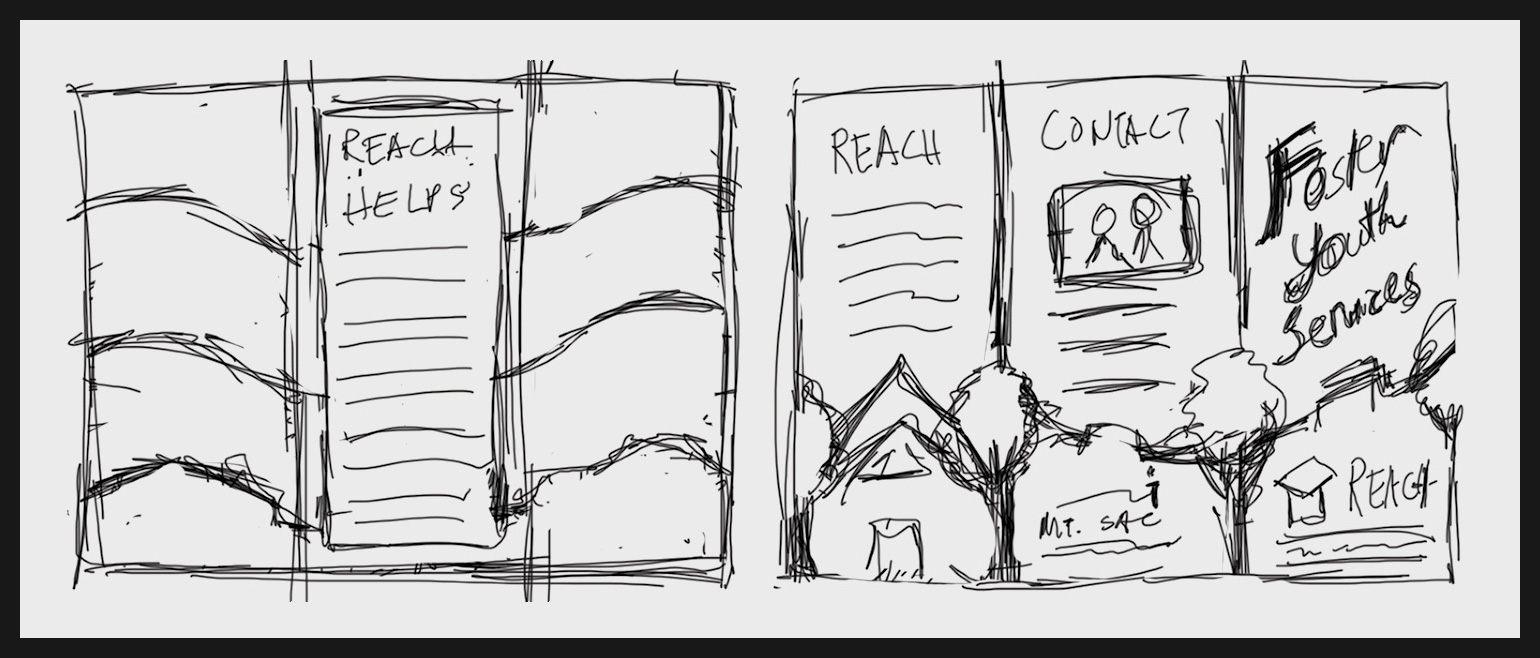 REACH
HELPS
REACH
CONTACT
Foster
Youth
Services
MT. SAC
REACH